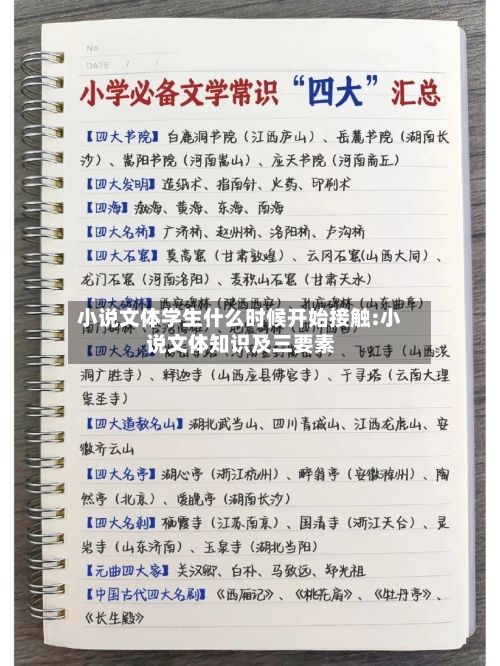 No
DATE / /
小学必备文学常识“四大”汇总
【四大书院】白鹿洞书院（江西庐山）、岳麓书院（湖南长
沙）、嵩阳书院（河南嵩山）、应天书院（河南商丘）
【四大发明】造纸术、指南针、火药、印刷术
【四海】渤海、黄海、东海、南海
【四大名桥】广济桥、赵州桥、洛阳桥、卢沟桥
【四大石窟】莫高窟（甘肃敦煌）、云冈石窟（山西大同）、
龙门石窟（河南洛阳）、麦积山石窟（甘肃天水）
小说文体学生什么时候开始接触:小
说文体知识及三要素
飞虹寺（山西洪
洞广胜寺）、释迦寺（山西应县佛宫寺）、千寻塔（云南大理
崇圣寺）
【四大道教名山】湖北武当山、四川青城山、江西龙虎山、安
徽齐云山
【四大名亭】湖心亭（浙江杭州）、醉翁亭（安徽滁州）、陶
然亭（北京）、爱晚亭（湖南长沙）
【四大名刹】栖霞寺（江苏南京）、国清寺（浙江天台）、灵
岩寺（山东济南）、玉泉寺（湖北当阳）
【元曲四大家】关汉卿、白朴、马致远、郑光祖
【中国古代四大名剧】《西厢记》、《桃花扇》、《牡丹亭》、
《长生殿》